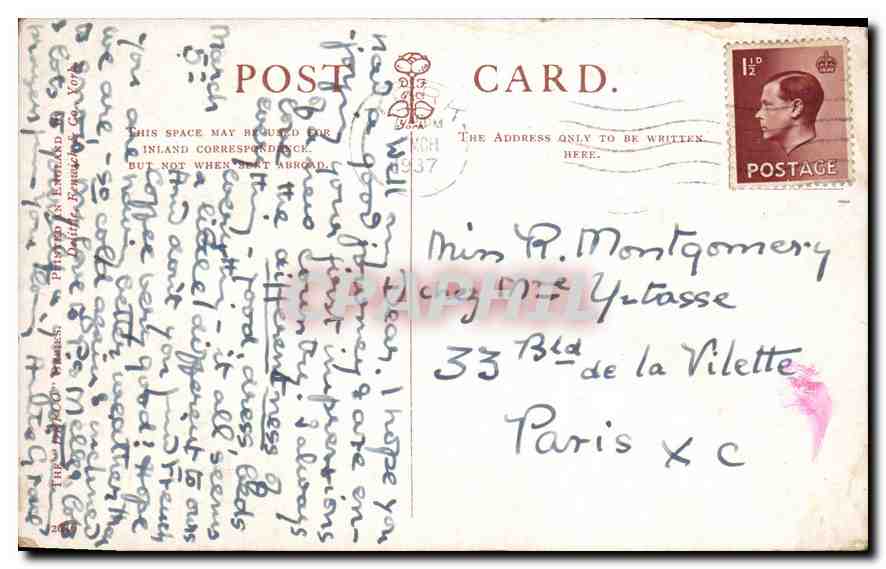 POST CARD.
THIS SPACE MAY BE USED FOR
INLAND CORRESPONDENCE.
BUT NOT WHEN SENT ABROAD.
D.F.
& Co
YORK
THE ADDRESS ONLY TO BE WRITTEN
HERE.
1½D
POSTAGE
1937
Miss R. Montgomery
chez Mme Ytasse
33 Bld de la Vilette
Paris X C
March
5
Well my dear. I hope you
had a good journey & are en-
joying your first impressions
of a new country. I always
love the differentness of
everything - food, dress, beds
everything - it all seems
a little different to ours
And don't you find French
Coffee very good? Hope
you are having better weather than
we are - so cold again & inclined
to
lots
PRINTED IN ENGLAND BY
Delittle, Fenwick & Co. York.
THE "DEFCO" SERIES.
CPAPHIL